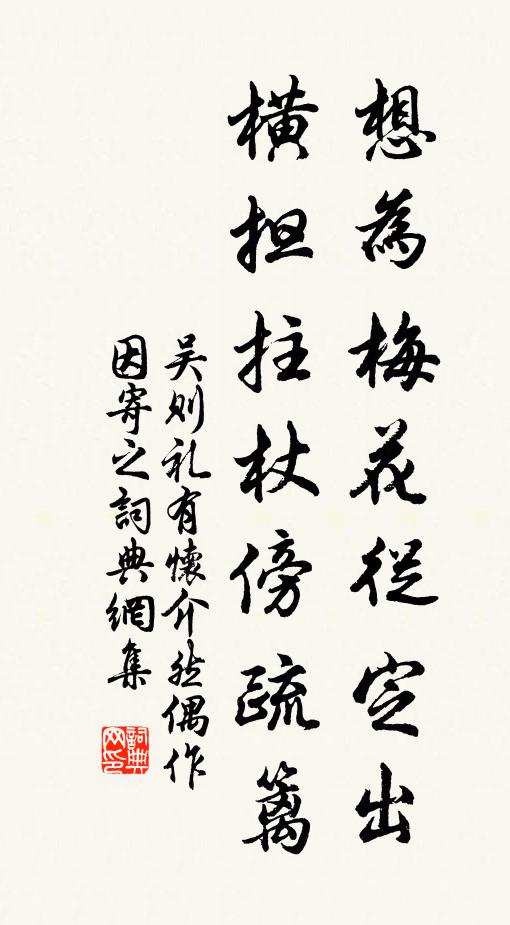 想為梅花從定出
橫担拄杖傍疏篱
吴则礼有懷介然偶作
因寄之詞典網集
詞典网印